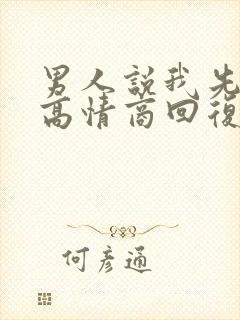 男人説我先
高情商回復
何彥通